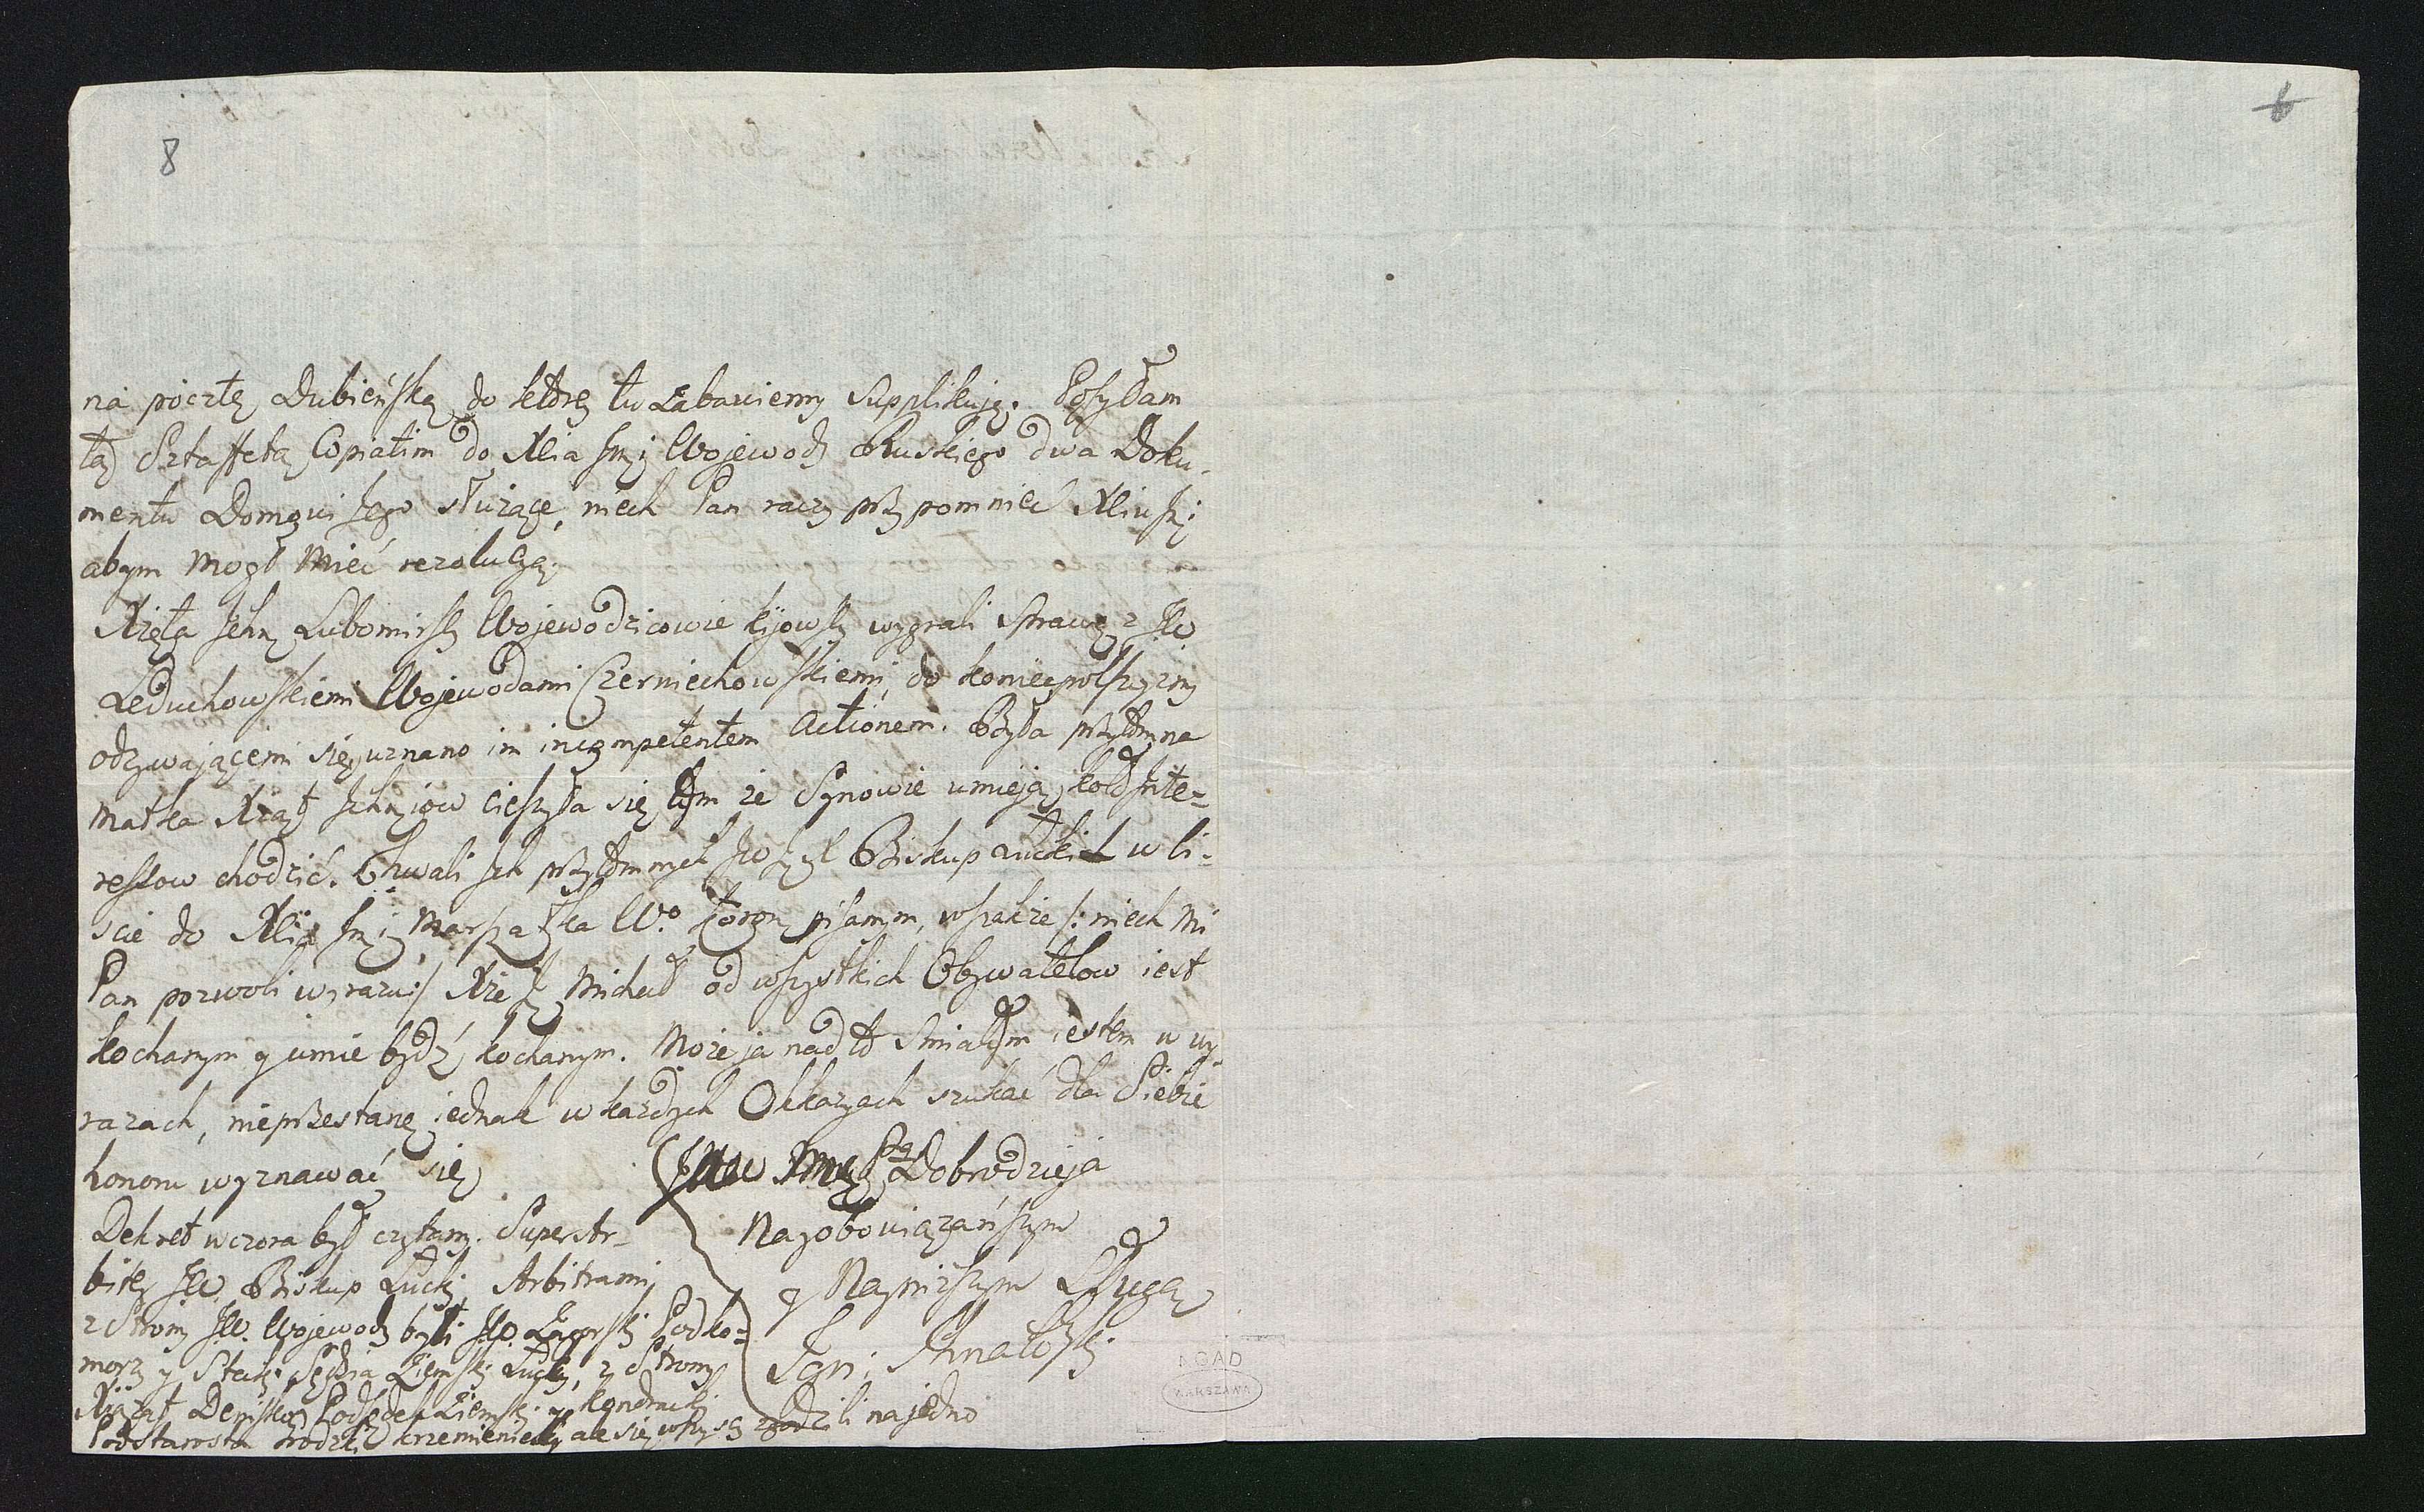 8
6
na pocztę Dubieńską do ktorey tu Łabaviemy Supplikuję. Posyłam
tą Sztaffetą Copiatim do Xcia Jmci Wojewody Ruskiego dwa Doku-
menta Domowi Jego służące, niech Pan raczy przypomnieć Xciu Jmci
abym mogł mieć rezolucyą.
Xięta Ichmć Lubomirscy Wojewodzicowie kijowscy wygrali sprawę z JW
Leduchowskiemi Wojewodami Czerniechowskiemi, do koniecpolszczyzny
odzywającemi się, uznano im incompetentem Actionem. Była przytomna
matka Xiąt Ichmciow cieszyła się tym że Synowie umieją koło Inte-
ressow chodzić. Chwali Ich przytomnych JW Biskup Łucki w li-
scie do Xcia Jmci Marszałka W.o koron. pisanym, wszakże /: niech mi
Pan pozwoli wyrazić :/ Xże Jmć Michał od wszystkich Obywatelow iest
kochanym y umie bydź kochanym. Może ja nadto smiałym iestem w wy-
razach, nieprzestanę iednak w każdych Okkazyach szukać dla Siebie
honoru wyznawać się
JWW Pana Dobrodzieja
Nayobowiązańszym
y Nayniższym Sługą
Dekret wczora był czytany. Superar-
bitr JW. Biskup Łucki, Arbitrami
z Strony JW. Wojewody byli JW. Zagorski Podko-
morzy y Stecki Sędzia Ziemski Łucki, z Strony
Xiąząt Denisko Podsędek Ziemski y Kondracki
Podstarosta Grodzki krzemieniecki ale się wszyscy zgodzili na jedno
AGAD
WARSZAWA